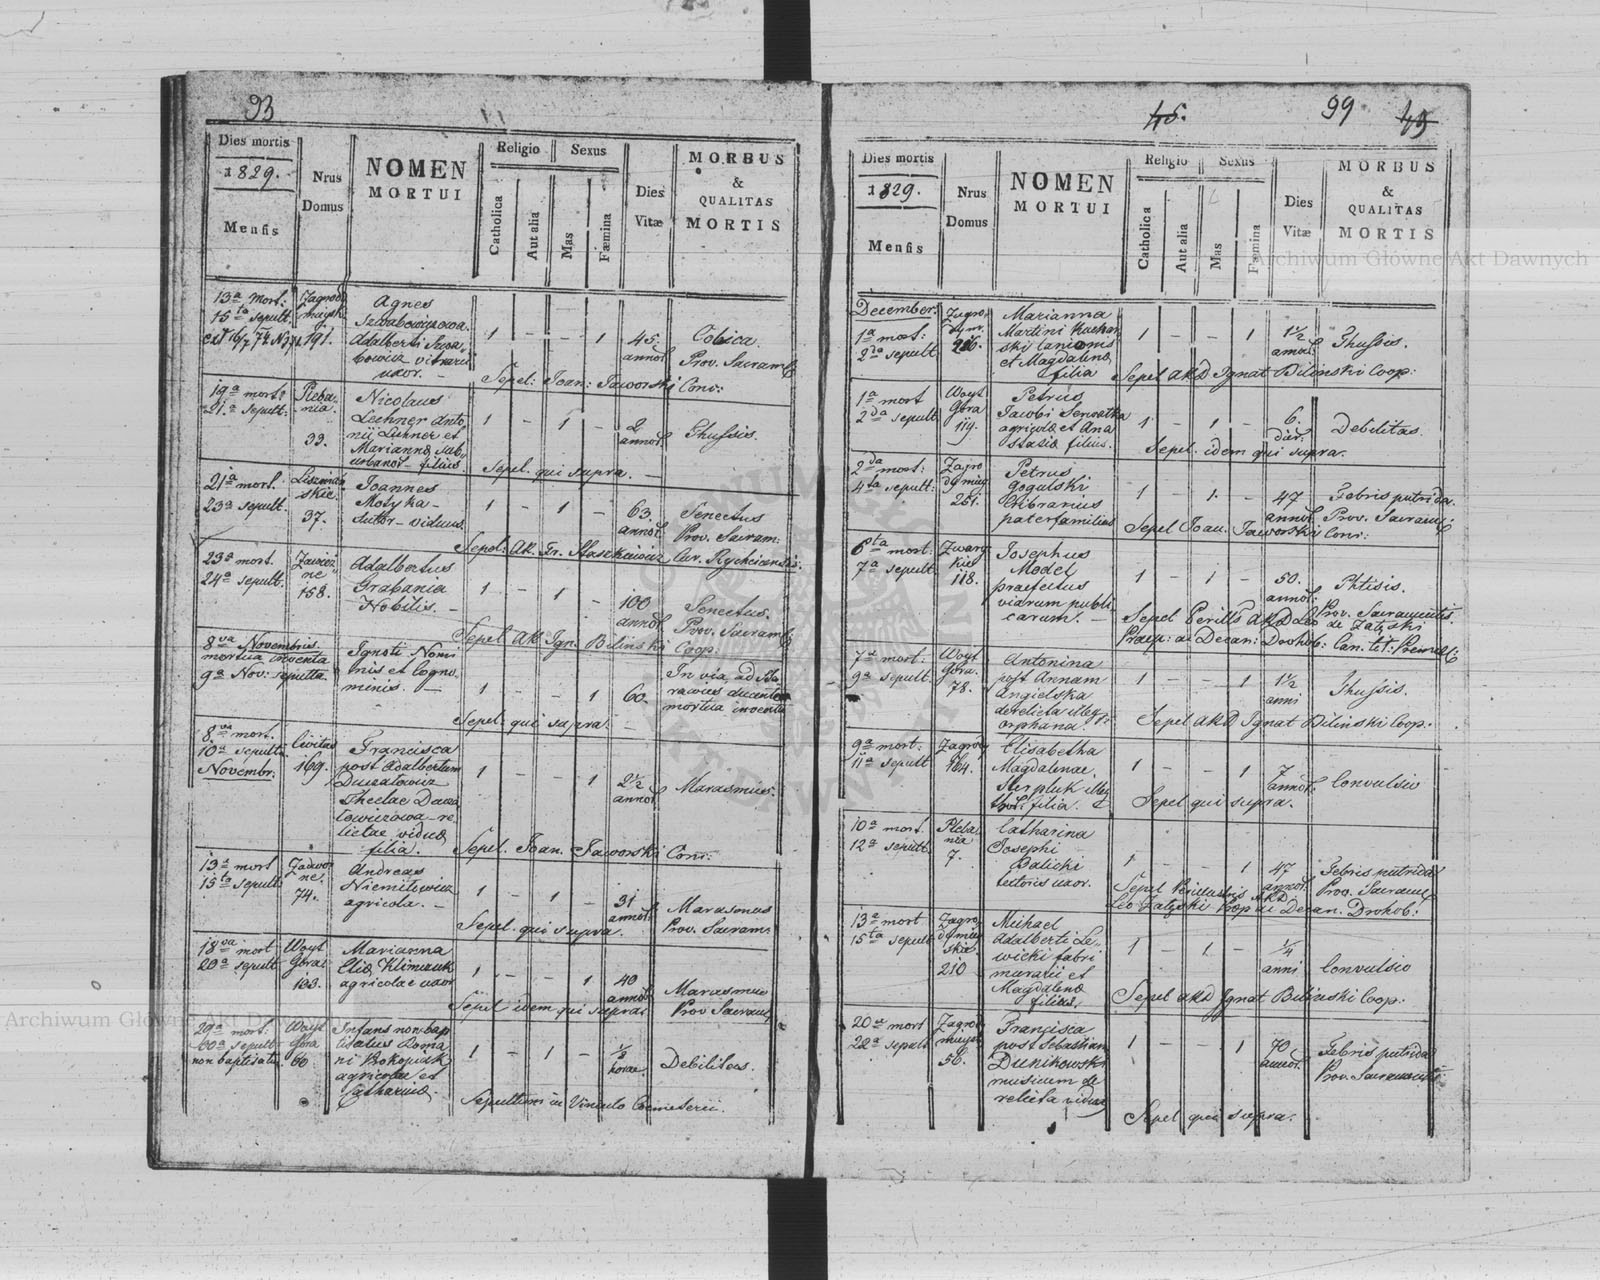 93
Dies mortis
1829.
Mensis
Nrus
Domus
NOMEN
MORTUI
Religio
Catholica
Aut alia
Sexus
Mas
Fæmina
Dies
Vitæ
MORBUS
&
QUALITAS
MORTIS
13a mort:
15ta sepult.
191.
Agnes
Szwabowiczowa
Adalberti Szwa
bowicz vitrarii
uxor. –
1 – – 1
45.
annor
Colica.
Prov. Sacram
Sepel: Joan: Jaworski Coni:
19a mort:
21.a sepult:
Pleba
nia.
33.
Nicolaus
Lechner Anto
nii Lechner et
Mariannæ sub
urbanor filius.
1 – 1 –
2
annor
Phussis.
Sepel. qui supra. –
21a mort.
23a sepult.
37.
Joannes
Motyka
Sutor – viduus
1 – 1 –
63.
annor
Senectus
Prov. Sacram:
Sepel: AR. Fr. Staszkiewicz Cur. Rychcicensis.
23a mort.
24a sepult.
158.
Adalbertus
Grabania
Nobilis. –
1 – 1 –
100
annor
Senectus.
Prov. Sacram
Sepel AR. Ign. Bilinski Coop:
8va Novembris
mortua inventa
9a Nov: sepulta
Ignoti Nomi
nis et Cogno
minis. –
1 – – 1
60.
In via ad
ducente
mortua inventa
Sepel: qui supra. –
8va mort.
10a sepulta
Novembr:
Civitas
169.
Francisca
post Adalbertum
Thecla
relictae viduæ
filia.
1 – – 1
2½
annor
Marasmus.
Sepel. Joan. Jaworski Coni:
13a mort
15ta sepult
Zadwor
ne.
74.
Andreas
Niemilowicz
agricola. –
1 – 1 –
31
annor
Marasmus
Prov. Sacram.
Sepel. qui supra.
18va mort
20a sepult
Woyt
Gora
103.
Marianna
Eliæ Klimczuk
agricolae uxor
1 – – 1
40
annor
Marasmus
Prov Sacram
Sepel idem qui supra.
29a mort:
30a sepult
non baptisatu
Woyt
Gora
60
Infans non bap
tisatus Roma
ni Prokopiak
agricolae et
Catharinæ.
1 – 1 –
½
horae.
Debilitas.
Sepultum in Vinculo Coemeterii.
45.
99
45
Dies mortis
1829.
Mensis
Nrus
Domus
NOMEN
MORTUI
Religio
Catholica
Aut alia
Sexus
Mas
Fæmina
Dies
Vitæ
MORBUS
&
QUALITAS
MORTIS
December.
1a mort:
2da sepult
Marianna
Martini
lanionis
et Magdalenæ
filia
1 – – 1
1½
annor
Phussis.
Sepel ARD Ignat Bilinski Coop:
1a mort
2da sepult
Woyt
Gora
119.
Petrus
Jacobi Serwatka
agricolæ et Ana
stasiæ filius.
1 – 1 –
6.
dier.
Debilitas.
Sepel. idem qui supra.
2da mort:
4ta sepult:
251.
Petrus
Gogulski
Cribrarius
paterfamilias
1 – 1. –
47
annor
Febris putrida.
Prov. Sacram
Sepel Joan. Jaworski Coni:
6ta mort:
7a sepult
118.
Josephus
Model
præfectus
viarum publi
carum. –
1 – 1 –
50.
annor.
Phtisis.
Prov. Sacramentis.
Sepel Perills ARD Leo de Załęski
Praep: ac Decan: Drohob: Can: tit: Premisl:
7a mort:
9a sepult.
Woyt
Gora.
78.
Antonina
post Annam
Angielska
derelicta illeg:
orphana.
1 – – 1
1½
anni
Phussis.
Sepel ARD Ignat Bilinski Coop:
9a mort:
11a sepult
164.
Elisabetha
Magdalenae
filia.
1 – – 1
7
annor.
Convulsio
Sepel qui supra.
10a mort.
12a sepult.
Pleba
nia
7.
Catharina
Josephi
Balicki
textoris uxor.
1 – 1
47
annor.
Febris putrida
Prov. Sacram
Sepel Perillustris ARD
Leo Załęski Præp ac Decan. Drohob:
13a mort
15ta sepult
210
Michael
Adalberti Le
wicki fabri
murarii et
Magdalenæ
filius.
1 – 1 –
¼
anni
Convulsio
Sepel ARD Ignat Bilinski Coop:
20a mort
22a sepult
56.
Francisca
post Sebastian
Dunikowski
musicum de
relicta vidua
1 – – 1
70
annor.
Febris putrida
Prov. Sacramentis
Sepel qui supra.
Archiwum Główne Akt Dawnych
Archiwum Główne Akt Dawnych